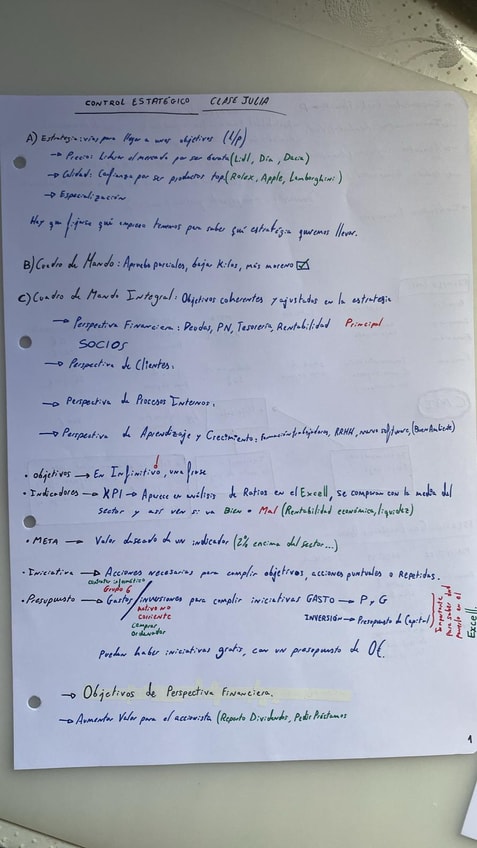 CONTROL ESTRATÉGICO CLASE JULIA
A) Estrategia: vías para llegar a unos objetivos (L/p)
→ Precio: Liderar el mercado por ser barato (Lidl, Dia, Dacia)
→ Calidad: Confianza por ser productos top (Rolex, Apple, Lamborghini)
→ Especialización
Hay que fijarse qué empresa tenemos para saber qué estratégia queremos llevar.
B) Cuadro de Mando: Aprueba parciales, bajar kilos, más moreno ☑
C) Cuadro de Mando Integral: Objetivos coherentes y ajustados en la estrategia
→ Perspectiva Financiera: Deudas, PN, Tesorería, Rentabilidad Principal
SOCIOS
→ Perspectiva de Clientes.
→ Perspectiva de Procesos Internos.
→ Perspectiva de Aprendizaje y Crecimiento: Formación trabajadores, RRHH, nuevo software, (Buen Ambiente)
• Objetivos → En Infinitivo, una frase
• Indicadores → KPI → Aparece en análisis de Ratios en el Excell, se comparan con la media del
sector y así ven si va Bien o Mal (Rentabilidad económica, liquidez)
• META → Valor deseado de un indicador (2% encima del sector...)
• Iniciativa → Acciones necesarias para cumplir objetivos, acciones puntuales o Repetidas.
contratar informático
Grupo 6
• Presupuesto → Gastos / INVERSIONES para cumplir iniciativas GASTO → P y G
Activo no
corriente
Comprar
ordenador
INVERSIÓN → Presupuesto de Capital
Importante para saber del puesto en el Excell.
Pueden haber iniciativas gratis, con un presupuesto de 0€.
→ Objetivos de Perspectiva Financiera.
→ Aumentar Valor para el accionista (Reparto Dividendos, Pedir Préstamos
1